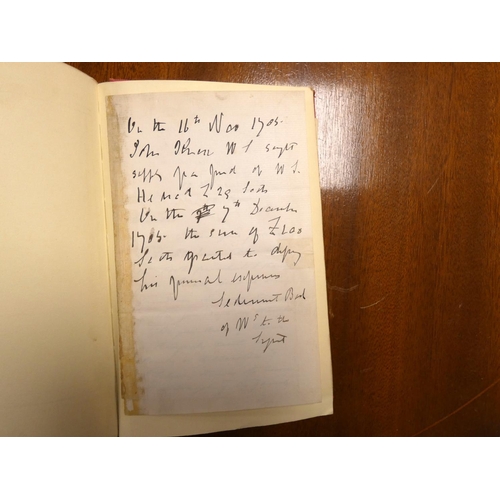 On the 16th Nov 1705.
John W S sought
supply fra fund of W S.
He had £29 Scots
On the 7th December
1705. the sum of £100
Scots granted to defray
his funeral expenses
Sederunt Book
of Ws to the
Signet